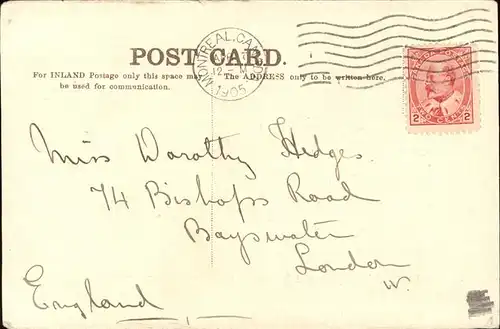 MONTREAL, CANADA
12 - M
1905
POST CARD.
For INLAND Postage only this space may The ADDRESS only to be written here.
be used for communication.
2 2
Miss Dorothy Hedges.
74 Bishops Road
Bayswater
London
W.
England